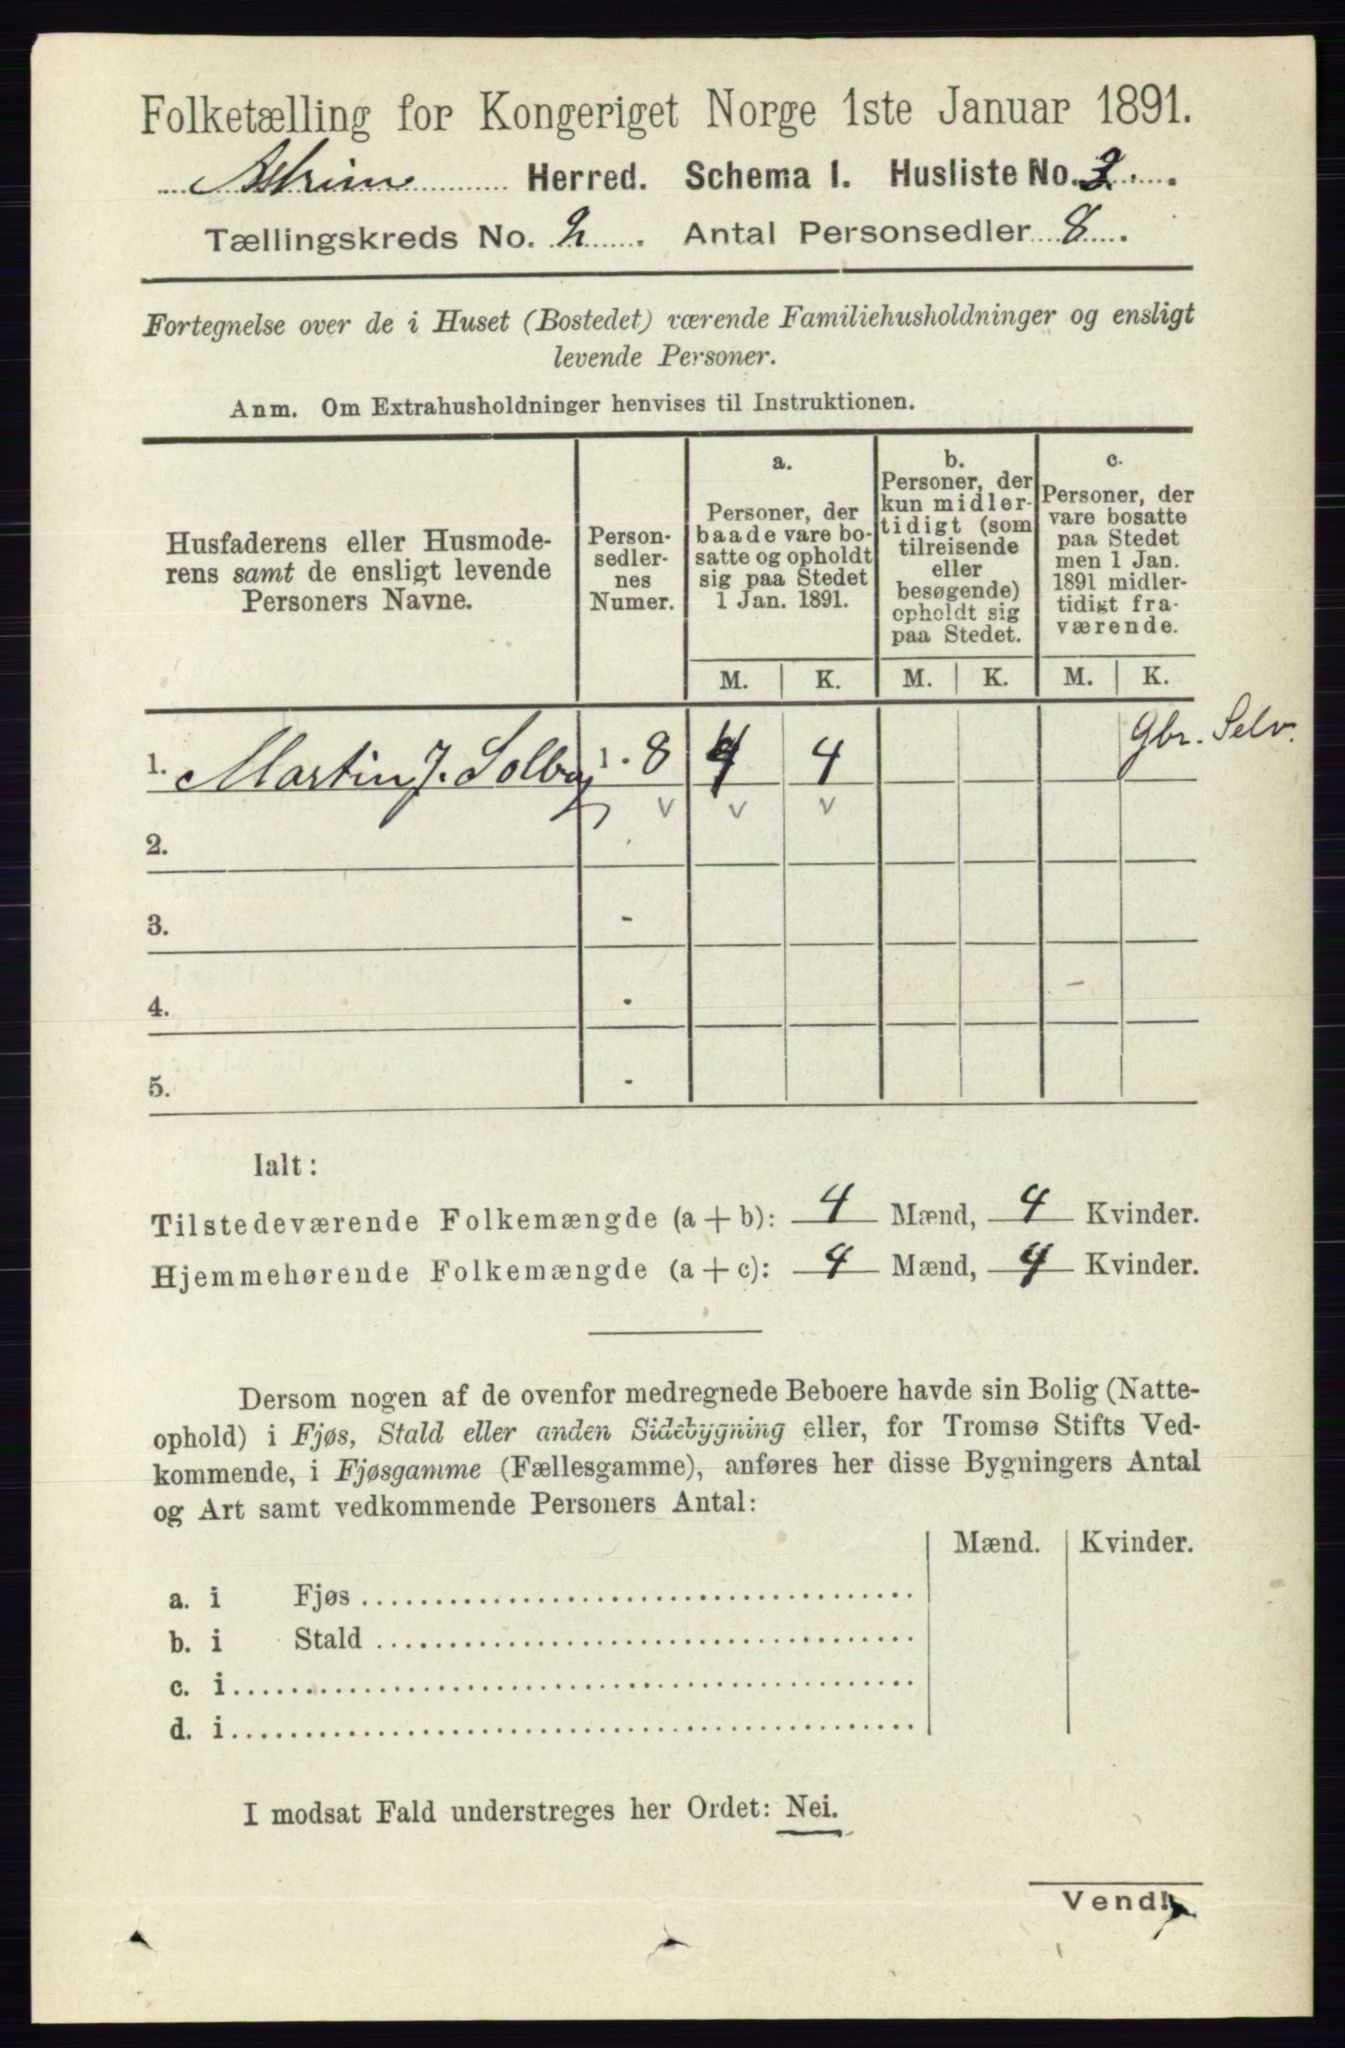 Folketælling for Kongeriget Norge 1ste Januar 1891.
Askim Herred. Schema I. Husliste No. 2.
Tællingskreds No. 2. Antal Personsedler 8.
Fortegnelse over de i Huset (Bostedet) værende Familiehusholdninger og ensligt
levende Personer.
Anm. Om Extrahusholdninger henvises til Instruktionen.
Husfaderens eller Husmode-
rens samt de ensligt levende
Personers Navne.
Person-
sedler-
nes
Numer.
a.
Personer, der
baade vare bo-
satte og opholdt
sig paa Stedet
1 Jan. 1891.
b.
Personer, der
kun midler-
tidigt (som
tilreisende
eller
besøgende)
opholdt sig
paa Stedet.
c.
Personer, der
vare bosatte
paa Stedet
men 1 Jan.
1891 midler-
tidigt fra-
værende.
M. K. M. K. M. K.
1. Martin J. Solberg 1 - 8 4 4 Gbr. Selv.
v v v
2.
3. -
4. -
5. -
Ialt:
Tilstedeværende Folkemængde (a + b): 4 Mænd, 4 Kvinder.
Hjemmehørende Folkemængde (a + c): 4 Mænd, 4 Kvinder.
Dersom nogen af de ovenfor medregnede Beboere havde sin Bolig (Natte-
ophold) i Fjøs, Stald eller anden Sidebygning eller, for Tromsø Stifts Ved-
kommende, i Fjøsgamme (Fællesgamme), anføres her disse Bygningers Antal
og Art samt vedkommende Personers Antal:
Mænd. Kvinder.
a. i Fjøs
b. i Stald
c. i
d. i
I modsat Fald understreges her Ordet: Nei.
Vend!